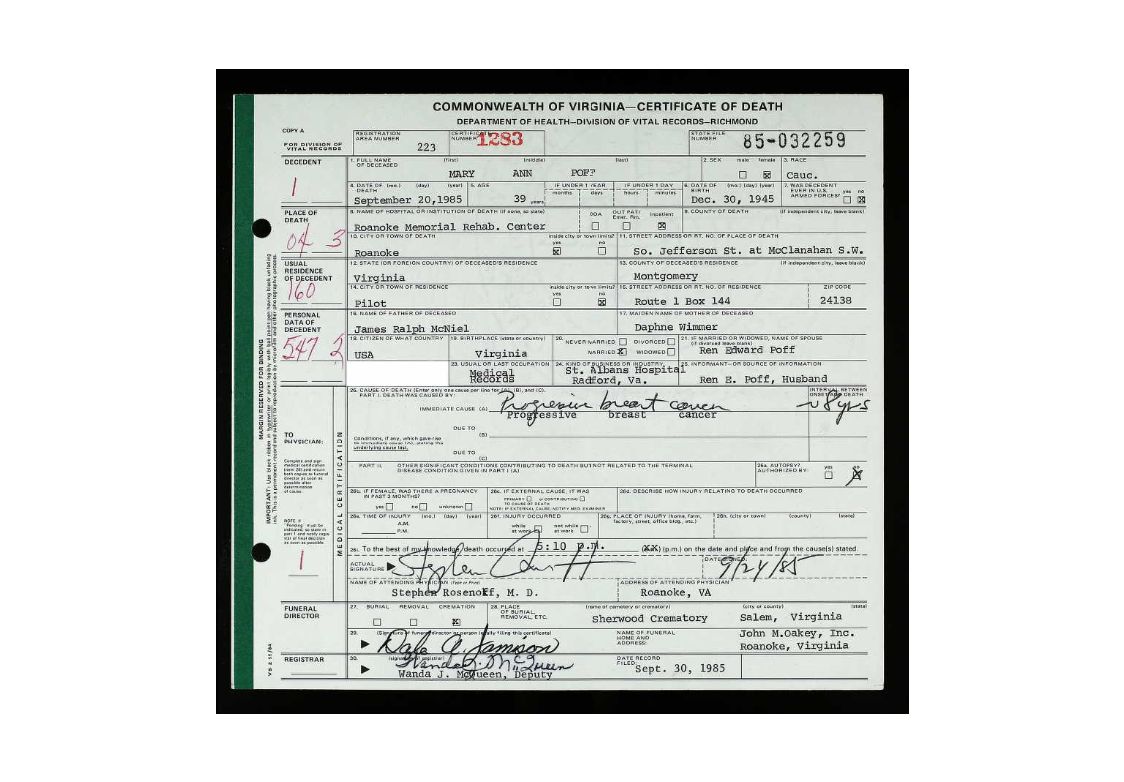 COMMONWEALTH OF VIRGINIA—CERTIFICATE OF DEATH
DEPARTMENT OF HEALTH—DIVISION OF VITAL RECORDS—RICHMOND
COPY A
FOR DIVISION OF VITAL RECORDS
REGISTRATION AREA NUMBER 223
CERTIFICATE NUMBER 1283
STATE FILE NUMBER 85-032259
DECEDENT
1
1. FULL NAME OF DECEASED (first) (middle) (last)
MARY ANN POFF
2. SEX male female
3. RACE
Cauc.
4. DATE OF DEATH (mo.) (day) (year)
September 20,1985
5. AGE
39 years
IF UNDER 1 YEAR months days
IF UNDER 1 DAY hours minutes
6. DATE OF BIRTH (mo.) (day) (year)
Dec. 30, 1945
7. WAS DECEDENT EVER IN U.S. ARMED FORCES? yes no
PLACE OF DEATH
04 3
8. NAME OF HOSPITAL OR INSTITUTION OF DEATH (if none, so state)
Roanoke Memorial Rehab. Center
DOA OUT PAT/ Emer. Rm. Inpatient
9. COUNTY OF DEATH (if independent city, leave blank)
10. CITY OR TOWN OF DEATH inside city or town limits? yes no
Roanoke
11. STREET ADDRESS OR RT. NO. OF PLACE OF DEATH
So. Jefferson St. at McClanahan S.W.
USUAL RESIDENCE OF DECEDENT
160
12. STATE (OR FOREIGN COUNTRY) OF DECEASED'S RESIDENCE
Virginia
13. COUNTY OF DECEASED'S RESIDENCE (if independent city, leave blank)
Montgomery
14. CITY OR TOWN OF RESIDENCE inside city or town limits? yes no
Pilot
15. STREET ADDRESS OR RT. NO. OF RESIDENCE ZIP CODE
Route 1 Box 144 24138
PERSONAL DATA OF DECEDENT
547 2
16. NAME OF FATHER OF DECEASED
James Ralph McNiel
17. MAIDEN NAME OF MOTHER OF DECEASED
Daphne Wimmer
18. CITIZEN OF WHAT COUNTRY
USA
19. BIRTHPLACE (state or country)
Virginia
20. NEVER MARRIED DIVORCED
MARRIED X WIDOWED
21. IF MARRIED OR WIDOWED, NAME OF SPOUSE (if divorced leave blank)
Ren Edward Poff
23. USUAL OR LAST OCCUPATION
Medical Records
24. KIND OF BUSINESS OR INDUSTRY
St. Albans Hospital
Radford, Va.
25. INFORMANT—OR SOURCE OF INFORMATION
Ren E. Poff, Husband
MARGIN RESERVED FOR BINDING
TO PHYSICIAN:
MEDICAL CERTIFICATION
26. CAUSE OF DEATH (Enter only one cause per line for (A), (B), and (C).
PART I. DEATH WAS CAUSED BY:
INTERVAL BETWEEN ONSET AND DEATH
IMMEDIATE CAUSE (A) Progressive breast cancer ~ 8 yrs
Progressive breast cancer
DUE TO (B)
Conditions, if any, which gave rise to immediate cause (A), stating the underlying cause last.
DUE TO (C)
PART II. OTHER SIGNIFICANT CONDITIONS CONTRIBUTING TO DEATH BUT NOT RELATED TO THE TERMINAL DISEASE CONDITION GIVEN IN PART I (A)
26a. AUTOPSY? AUTHORIZED BY: yes no
Complete and sign medical certification (item 26) and return both copies to funeral director as soon as possible after determination of cause.
26b. IF FEMALE, WAS THERE A PREGNANCY IN PAST 3 MONTHS?
yes no unknown
26c. IF EXTERNAL CAUSE, IT WAS
PRIMARY or CONTRIBUTING TO CAUSE OF DEATH
NOTE: IF EXTERNAL CAUSE, NOTIFY MED. EXAMINER
26d. DESCRIBE HOW INJURY RELATING TO DEATH OCCURRED
26e. TIME OF INJURY (mo.) (day) (year)
A.M.
P.M.
26f. INJURY OCCURRED
while at work not while at work
26g. PLACE OF INJURY (home, farm, factory, street, office bldg., etc.)
26h. (city or town) (county) (state)
1
26i. To the best of my knowledge, death occurred at 5:10 p.m. (XX) (p.m.) on the date and place and from the cause(s) stated.
ACTUAL SIGNATURE
DATE SIGNED
9/24/85
NAME OF ATTENDING PHYSICIAN (Type or Print)
Stephen Rosenoff, M. D.
ADDRESS OF ATTENDING PHYSICIAN
Roanoke, VA
FUNERAL DIRECTOR
27. BURIAL REMOVAL CREMATION
28. PLACE OF BURIAL, REMOVAL, ETC. (name of cemetery or crematory) (city or county) (state)
Sherwood Crematory Salem, Virginia
29. (Signature of funeral director or person legally filing this certificate)
Dale A. Jamison
NAME OF FUNERAL HOME AND ADDRESS:
John M.Oakey, Inc.
Roanoke, Virginia
REGISTRAR
30. (signature of registrar)
Wanda J. McQueen
Wanda J. McQueen, Deputy
DATE RECORD FILED
Sept. 30, 1985
VS 2 11/84